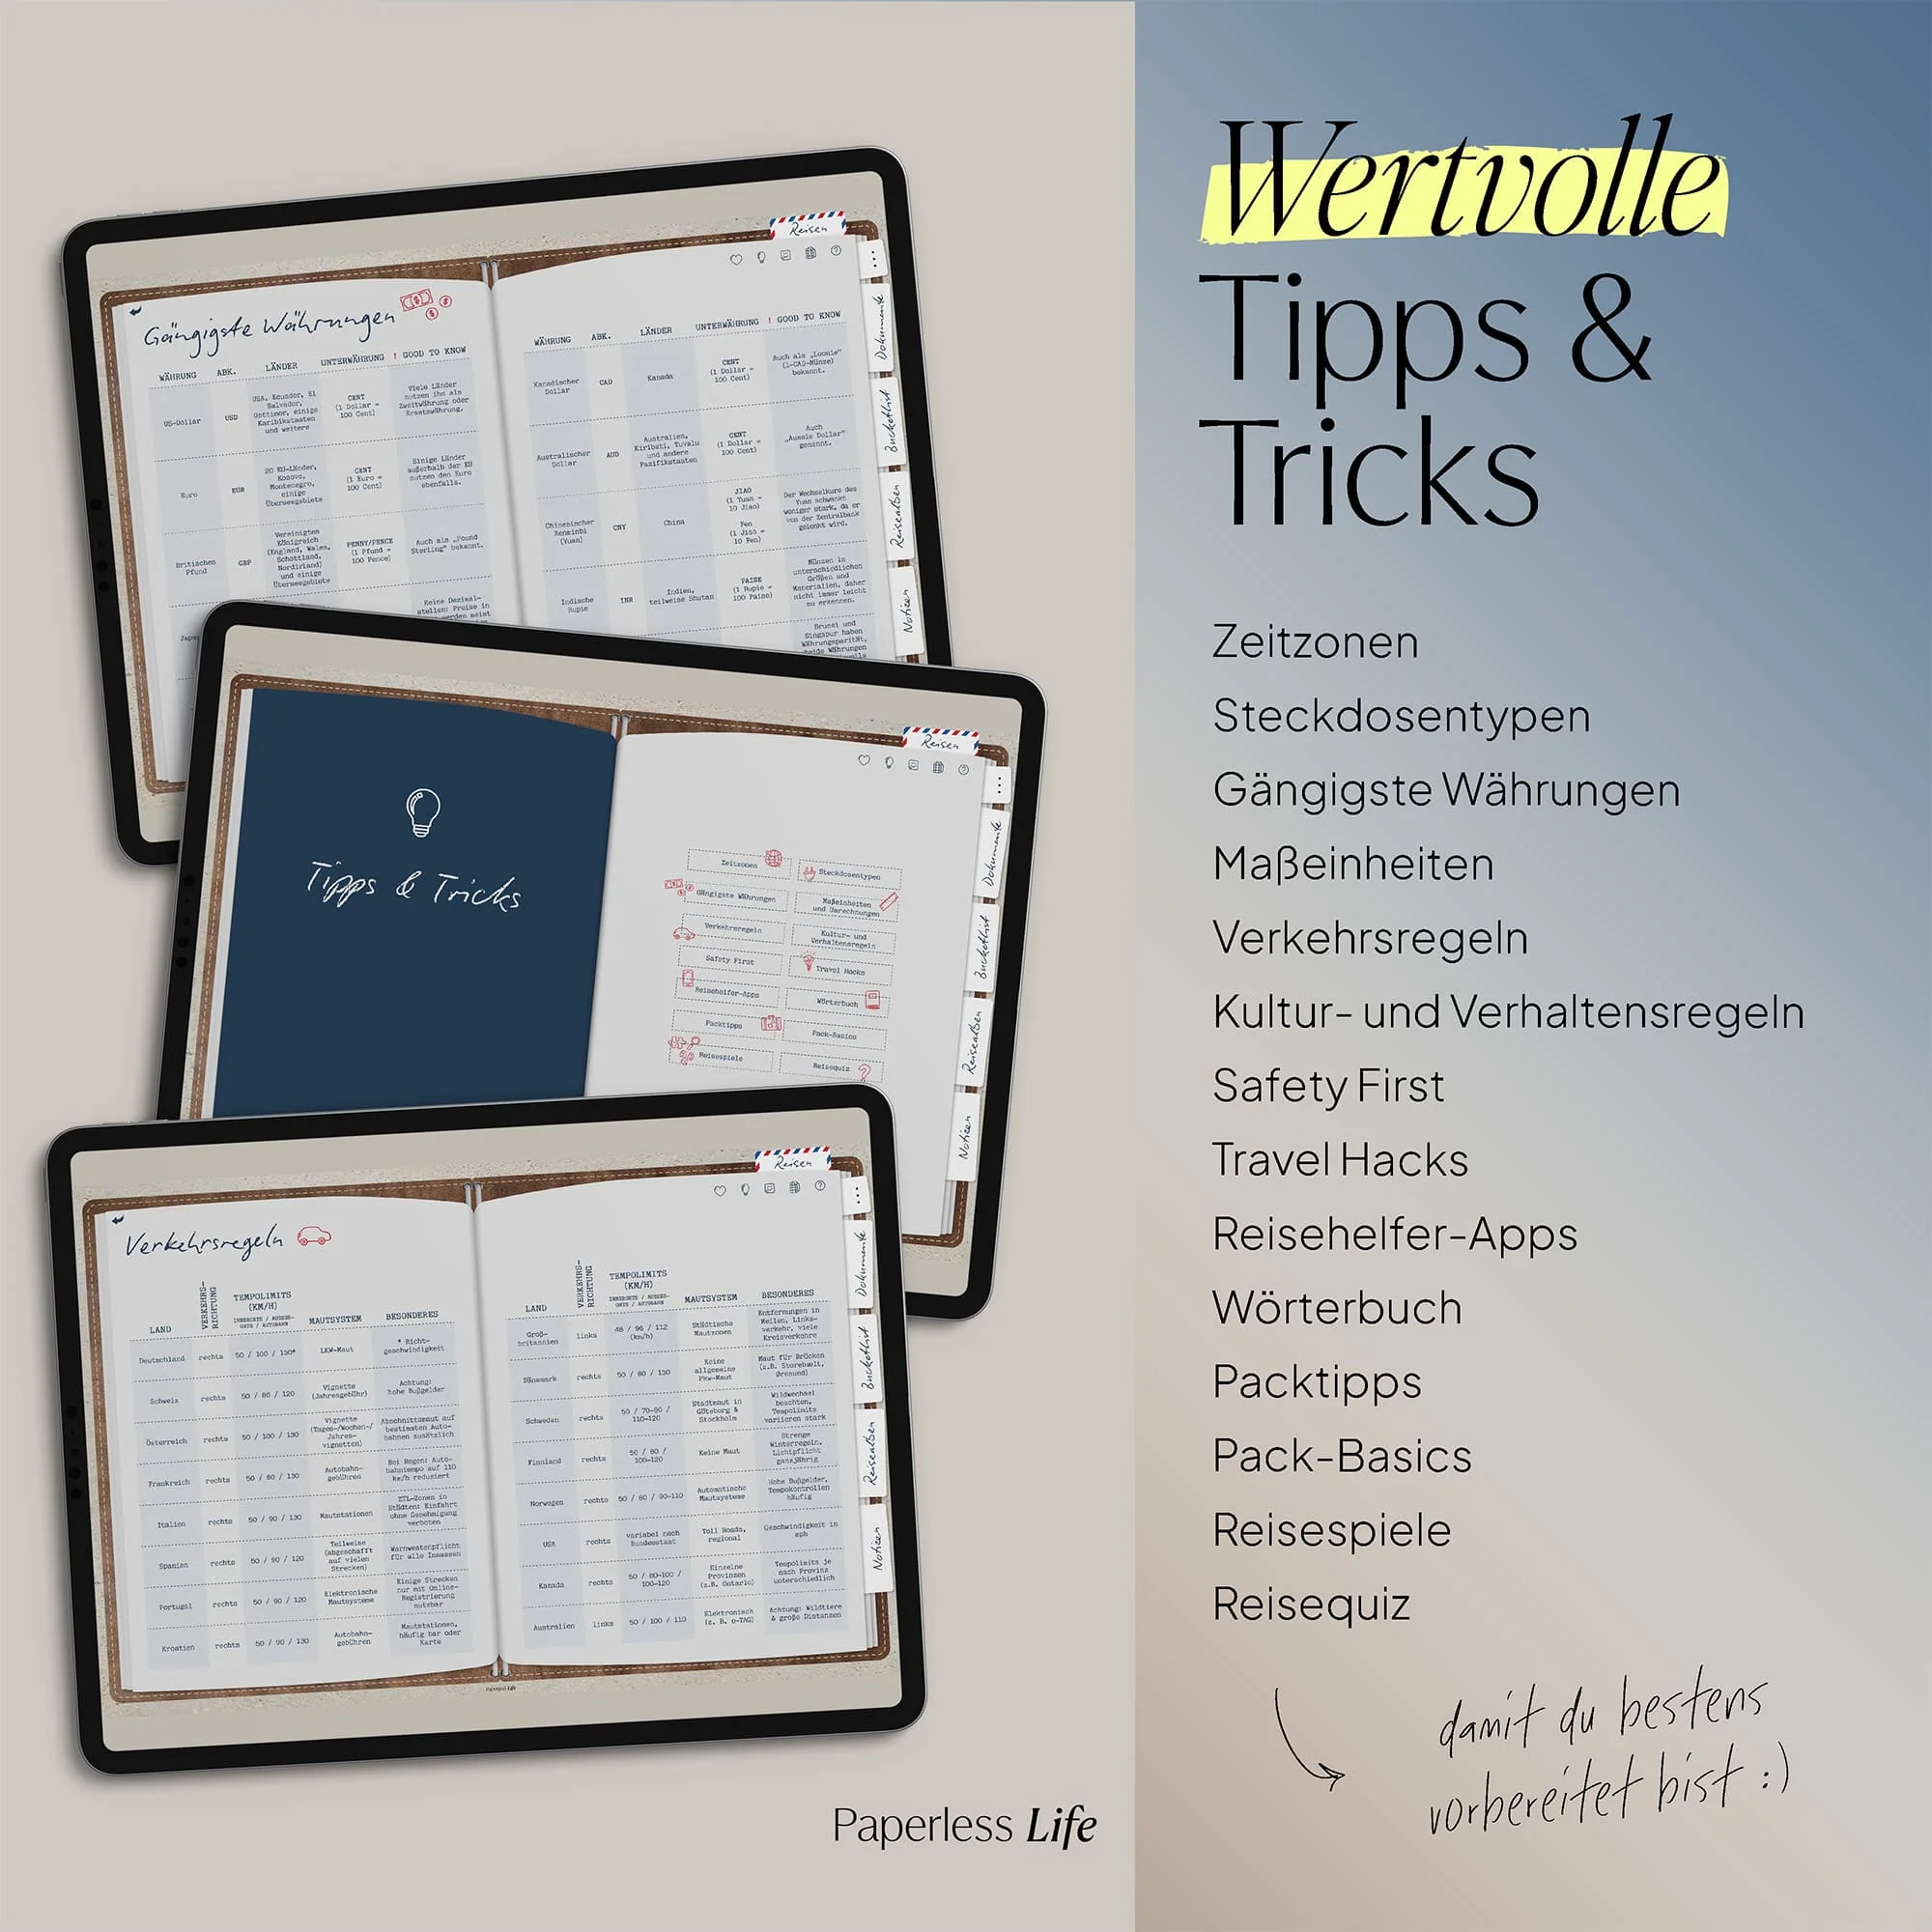 Reisen
Gängigste Währungen
WÄHRUNG ABK. LÄNDER UNTERWÄHRUNG ! GOOD TO KNOW
US-Dollar USD USA, Ecuador, El Salvador, Osttimor, einige Karibikstaaten und weitere CENT (1 Dollar = 100 Cent) Viele Länder nutzen ihn als Zweitwährung oder Ersatzwährung.
Euro EUR 20 EU-Länder, Kosovo, Montenegro, einige Überseegebiete CENT (1 Euro = 100 Cent) Einige Länder außerhalb der EU nutzen den Euro ebenfalls.
Britisches Pfund GBP Vereinigtes Königreich (England, Wales, Schottland, Nordirland) und einige Überseegebiete PENNY/PENCE (1 Pfund = 100 Pence) Auch als „Pound Sterling" bekannt.
Japa
Keine Dezimal-
stellen: Preise in
werden meist
WÄHRUNG ABK. LÄNDER UNTERWÄHRUNG ! GOOD TO KNOW
Kanadischer Dollar CAD Kanada CENT (1 Dollar = 100 Cent) Auch als „Loonie" (1-CAD-Münze) bekannt.
Australischer Dollar AUD Australien, Kiribati, Tuvalu und andere Pazifikstaaten CENT (1 Dollar = 100 Cent) Auch „Aussie Dollar" genannt.
Chinesischer Renminbi (Yuan) CNY China JIAO (1 Yuan = 10 Jiao) Fen (1 Jiao = 10 Fen) Der Wechselkurs des Yuan schwankt weniger stark, da er von der Zentralbank gelenkt wird.
Indische Rupie INR Indien, teilweise Bhutan PAISE (1 Rupie = 100 Paise) Münzen in unterschiedlichen Größen und Materialien, daher nicht immer leicht zu erkennen.
Brunei und
Singapur haben
Währungsparität,
beide Währungen
Dokumente
Bucketlist
Reisealben
Notizen
Reisen
Tipps & Tricks
Zeitzonen
Steckdosentypen
Gängigste Währungen
Maßeinheiten und Umrechnungen
Verkehrsregeln
Kultur- und Verhaltensregeln
Safety First
Travel Hacks
Reisehelfer-Apps
Wörterbuch
Packtipps
Pack-Basics
Reisespiele
Reisequiz
Dokumente
Bucketlist
Reisealben
Notizen
Reisen
Verkehrsregeln
LAND VERKEHRS-RICHTUNG TEMPOLIMITS (KM/H) INNERORTS / AUSSER-ORTS / AUTOBAHN MAUTSYSTEM BESONDERES
Deutschland rechts 50 / 100 / 130* LKW-Maut * Richt-geschwindigkeit
Schweiz rechts 50 / 80 / 120 Vignette (Jahresgebühr) Achtung: hohe Bußgelder
Österreich rechts 50 / 100 / 130 Vignette (Tages-/Wochen-/Jahres-vignetten) Abschnittsmaut auf bestimmten Auto-bahnen zusätzlich
Frankreich rechts 50 / 80 / 130 Autobahn-gebühren Bei Regen: Auto-bahntempo auf 110 km/h reduziert
Italien rechts 50 / 90 / 130 Mautstationen ZTL-Zonen in Städten: Einfahrt ohne Genehmigung verboten
Spanien rechts 50 / 90 / 120 Teilweise (abgeschafft auf vielen Strecken) Warnwestenpflicht für alle Insassen
Portugal rechts 50 / 90 / 120 Elektronische Mautsysteme Einige Strecken nur mit Online-Registrierung nutzbar
Kroatien rechts 50 / 90 / 130 Autobahn-gebühren Mautstationen, häufig bar oder Karte
LAND VERKEHRS-RICHTUNG TEMPOLIMITS (KM/H) INNERORTS / AUSSER-ORTS / AUTOBAHN MAUTSYSTEM BESONDERES
Groß-britannien links 48 / 96 / 112 (km/h) Städtische Mautzonen Entfernungen in Meilen, Links-verkehr, viele Kreisverkehre
Dänemark rechts 50 / 80 / 130 Keine allgemeine Pkw-Maut Maut für Brücken (z.B. Storebælt, Øresund)
Schweden rechts 50 / 70-90 / 110-120 Stadtmaut in Göteborg & Stockholm Wildwechsel beachten, Tempolimits variieren stark
Finnland rechts 50 / 80 / 100-120 Keine Maut Strenge Winterregeln, Lichtpflicht ganzjährig
Norwegen rechts 50 / 80 / 90-110 Automatische Mautsysteme Hohe Bußgelder, Tempokontrollen häufig
USA rechts variabel nach Bundesstaat Toll Roads, regional Geschwindigkeit in mph
Kanada rechts 50 / 80-100 / 100-120 Einzelne Provinzen (z.B. Ontario) Tempolimits je nach Provinz unterschiedlich
Australien links 50 / 100 / 110 Elektronisch (z. B. e-TAG) Achtung: Wildtiere & große Distanzen
Dokumente
Bucketlist
Reisealben
Notizen
Paperless Life
Paperless Life
Wertvolle
Tipps &
Tricks
Zeitzonen
Steckdosentypen
Gängigste Währungen
Maßeinheiten
Verkehrsregeln
Kultur- und Verhaltensregeln
Safety First
Travel Hacks
Reisehelfer-Apps
Wörterbuch
Packtipps
Pack-Basics
Reisespiele
Reisequiz
damit du bestens
vorbereitet bist :)